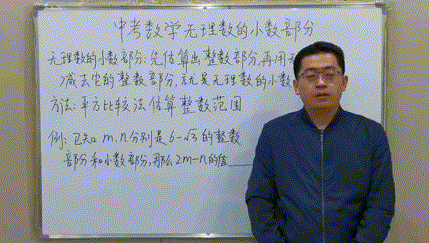 中考数学无理数的小数部分
无理数的小数部分:先估算出整数部分,再用
减去它的整数部分,就是无理数的小数
方法:平方比较法估算整数范围
例:已知m,n分别是6-√3的整数
部分和小数部分,那么2m-n的值____